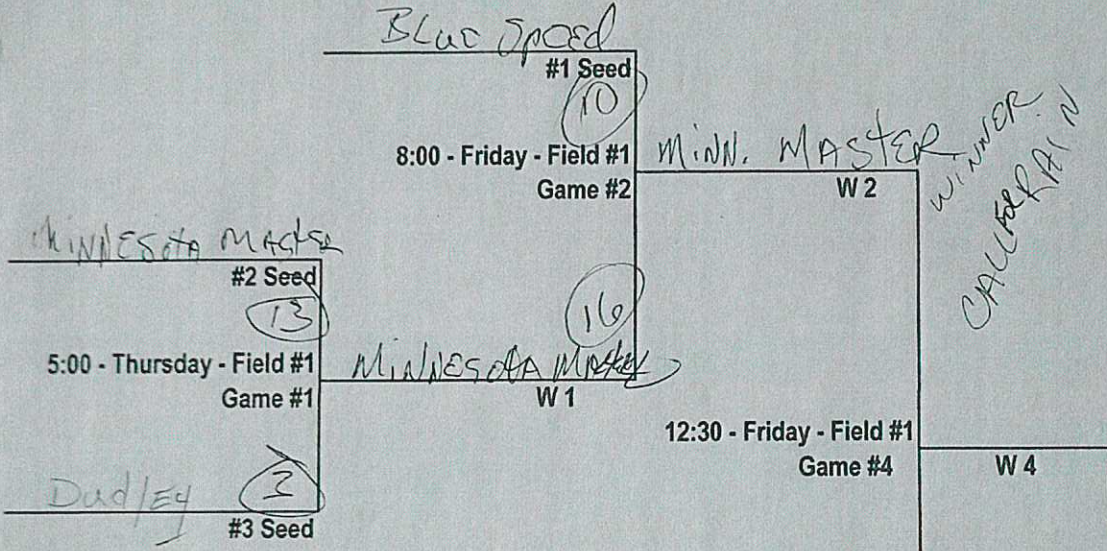 BLUE SPEED
#1 Seed
10
8:00 - Friday - Field #1
MINN. MASTER
Game #2
W 2
WINNER.
CALL FOR RAIN
MINNESOTA MASTER
#2 Seed
13
16
5:00 - Thursday - Field #1
MINNESOTA MASTER
Game #1
W 1
12:30 - Friday - Field #1
Game #4
W 4
Dudley
3
#3 Seed